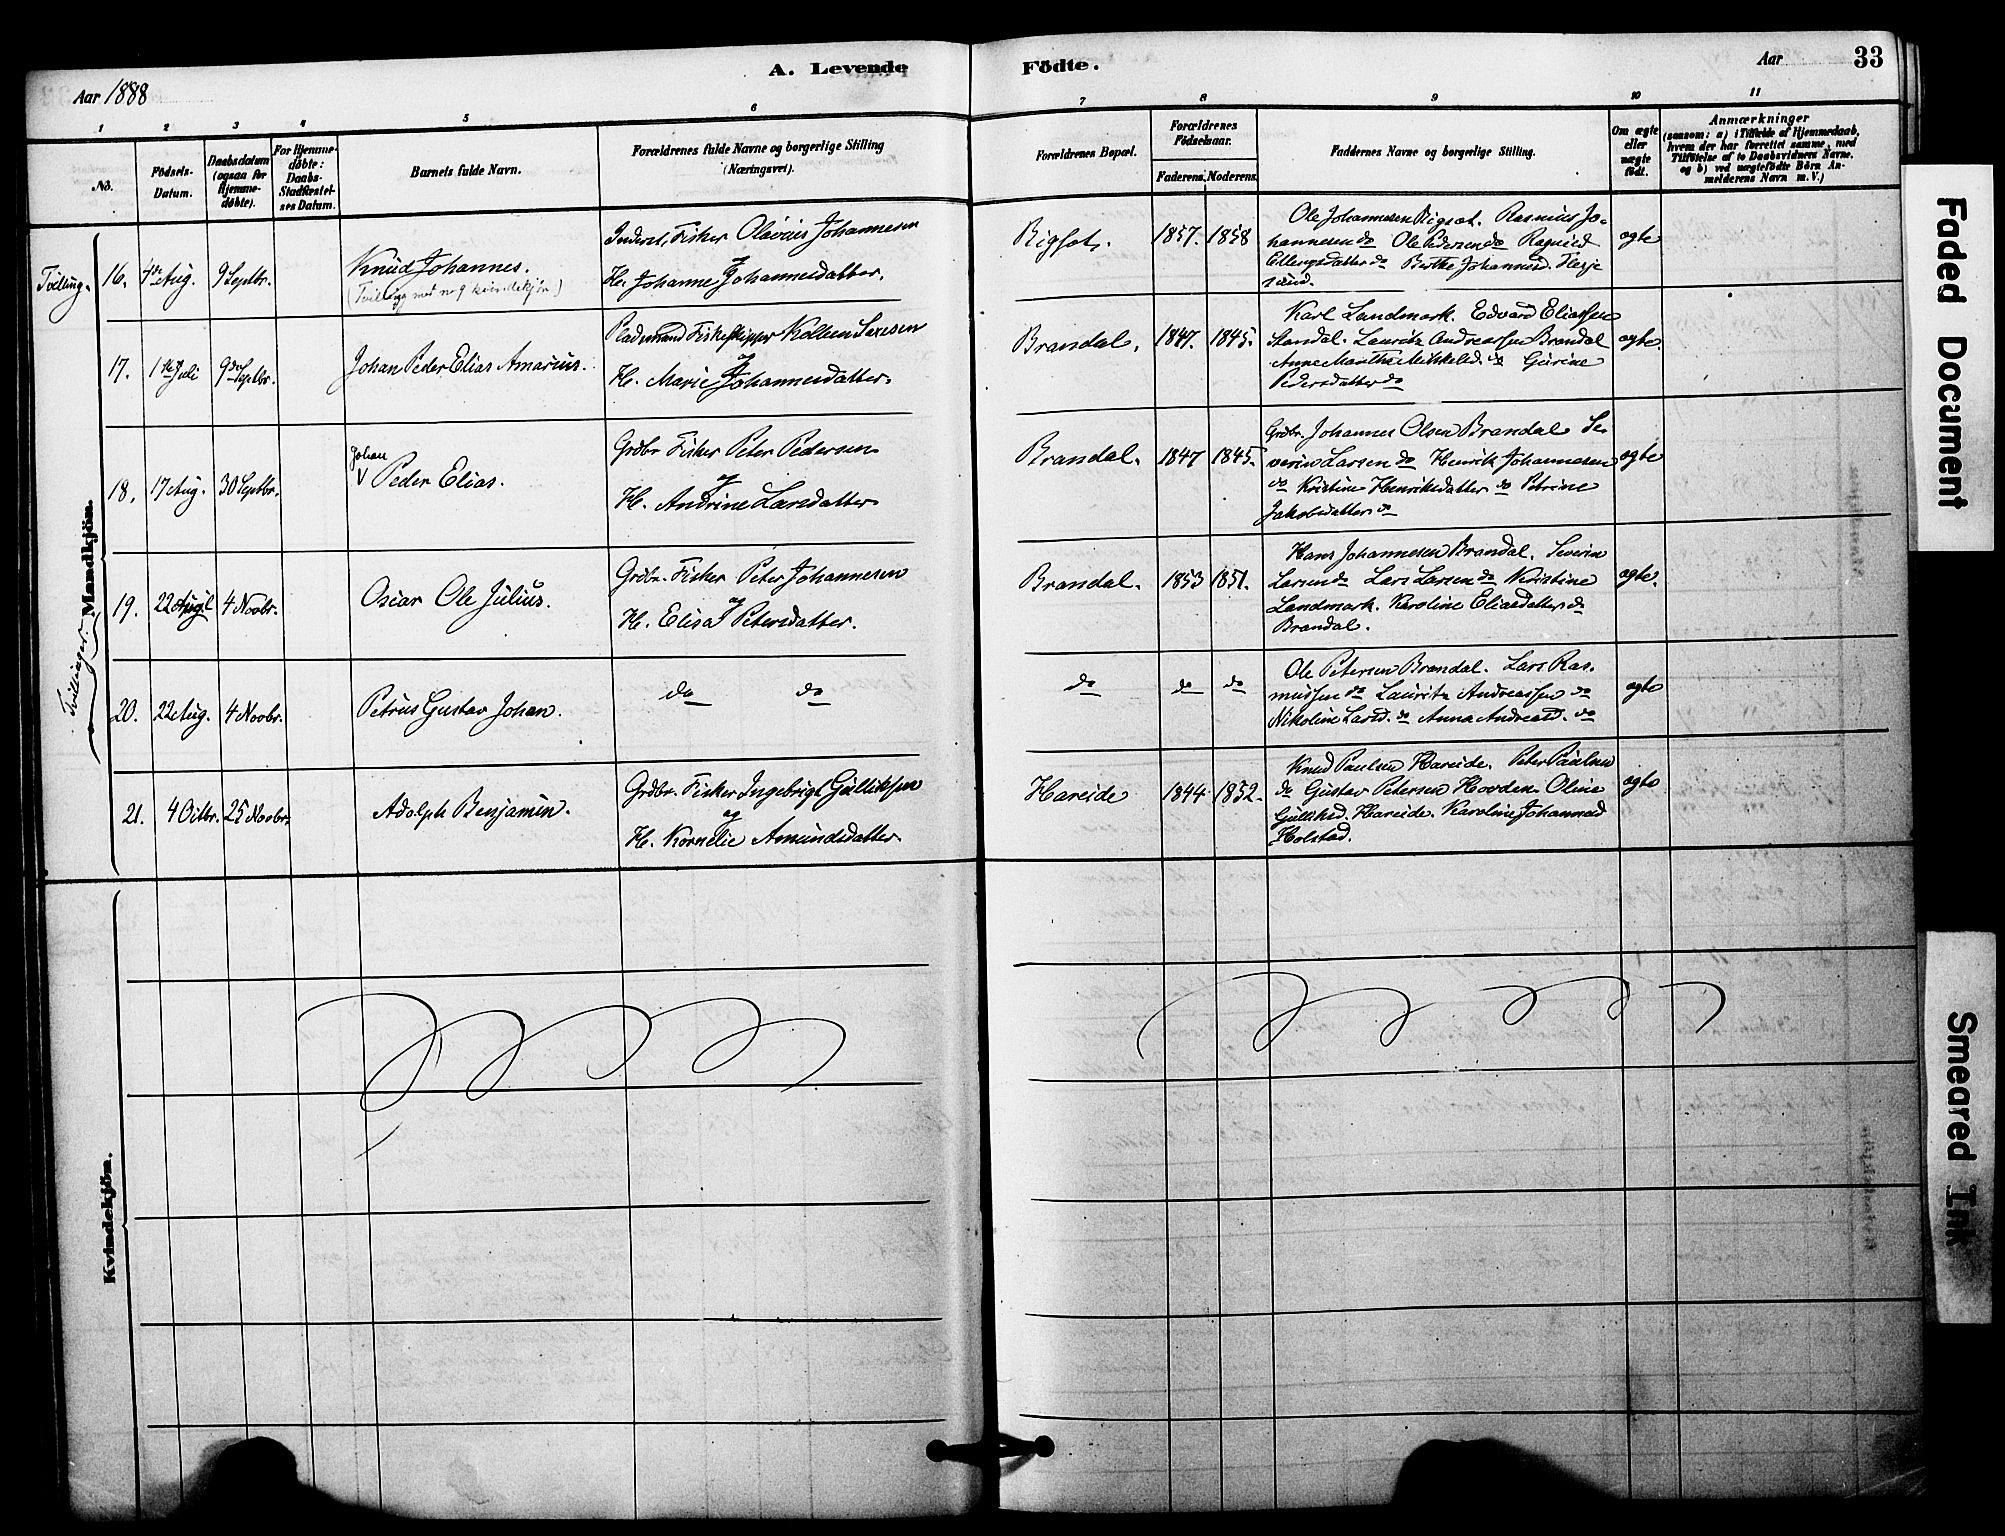 A. Levende Födte.
Aar 1888
Aar
33
1 2 3 4 5 6 7 8 9 10 11
No.
Födsels-
Datum.
Daabsdatum
(ogsaa for
Hjemme-
döbte).
For Hjemme-
döbte:
Daabs-
Stadfæstel-
ses Datum.
Barnets fulde Navn.
Forældrenes fulde Navne og borgerlige Stilling
(Næringsvei).
Forældrenes Bopæl.
Forældrenes
Födselsaar.
Faderens. Moderens.
Faddernes Navne og borgerlige Stilling.
Om ægte
eller
uægte
födt.
Anmærkninger
(saasom: a) i Tilfælde af Hjemmedaab,
hvem der har forrettet samme, med
Tilföielse af to Daabsvidners Navne,
og b) ved uægtefödte Börn An-
melderens Navn m. V.)
Mandkjön.
Tvilling.
16. 4de Aug. 9 Septbr.
Knud Johannes.
(Tvilling med no 9 kvindekjön)
Inderst, Fisker Olavius Johannesen
og
H. Johanne Johannesdatter.
Rigsot. 1857. 1858
Ole Johannesen Rigsot. Rasmus Jo-
hannesen do Ole Pedersen do Ragnild
Ellingsdatter do Berthe Johannesd. Flesje
sund.
ægte
17. 1ste Juli 9de Septbr.
Johan Peder Elias Amarius.
Pladsmand Fiskeskipper Kolbein Sexesen
og
H. Marie Johannesdatter.
Brandal. 1847. 1845.
Karl Landmark. Edvard Eliassen
Standal. Lauritz Andreassen Brandal
Anne Marthe Mikkelsd. do Gurine
Pedersdatter do
ægte.
18. 17 Aug. 30 Septbr.
Johan
V Peder Elias.
Grdbr Fisker Peter Pedersen
og
H. Andrine Larsdatter
Brandal. 1847 1845.
Grdbr. Johannes Olsen Brandal Se-
verin Larsen do Henrik Johannesen
do Kristine Henriksdatter do Petrine
Jakobsdatter do
ægte
Tvillinger
19. 22 Aug. 4 Novbr.
Oscar Ole Julius.
Grdbr. Fisker Peter Johannesen
og
H. Elisa Petersdatter.
Brandal. 1853 1851.
Hans Johannesen Brandal. Severin
Larsen do Lars Larsen do Kristine
Landmark. Karoline Eliasdatter do
Brandal.
ægte.
20. 22 Aug. 4 Novbr.
Petrus Gustav Johan.
do do
do do do
Ole Petersen Brandal. Lars Ras-
mussen do Lauritz Andreassen do
Nikoline Larsd. do Anna Andreasd. do
ægte
21. 4 Octbr. 25 Novbr.
Adolph Benjamin.
Grdbr. Fisker Ingebrigt Gulliksen
og
H. Kornelie Amundsdatter
Hareide 1844 1852.
Knud Paulsen Hareide. Peter Paulsen
do Gustav Petersen Hovden. Oline
Gulliksd. Hareide. Karoline Johannesd
Holstad.
ægte
Kvindekjön.
Faded Document
Smeared Ink